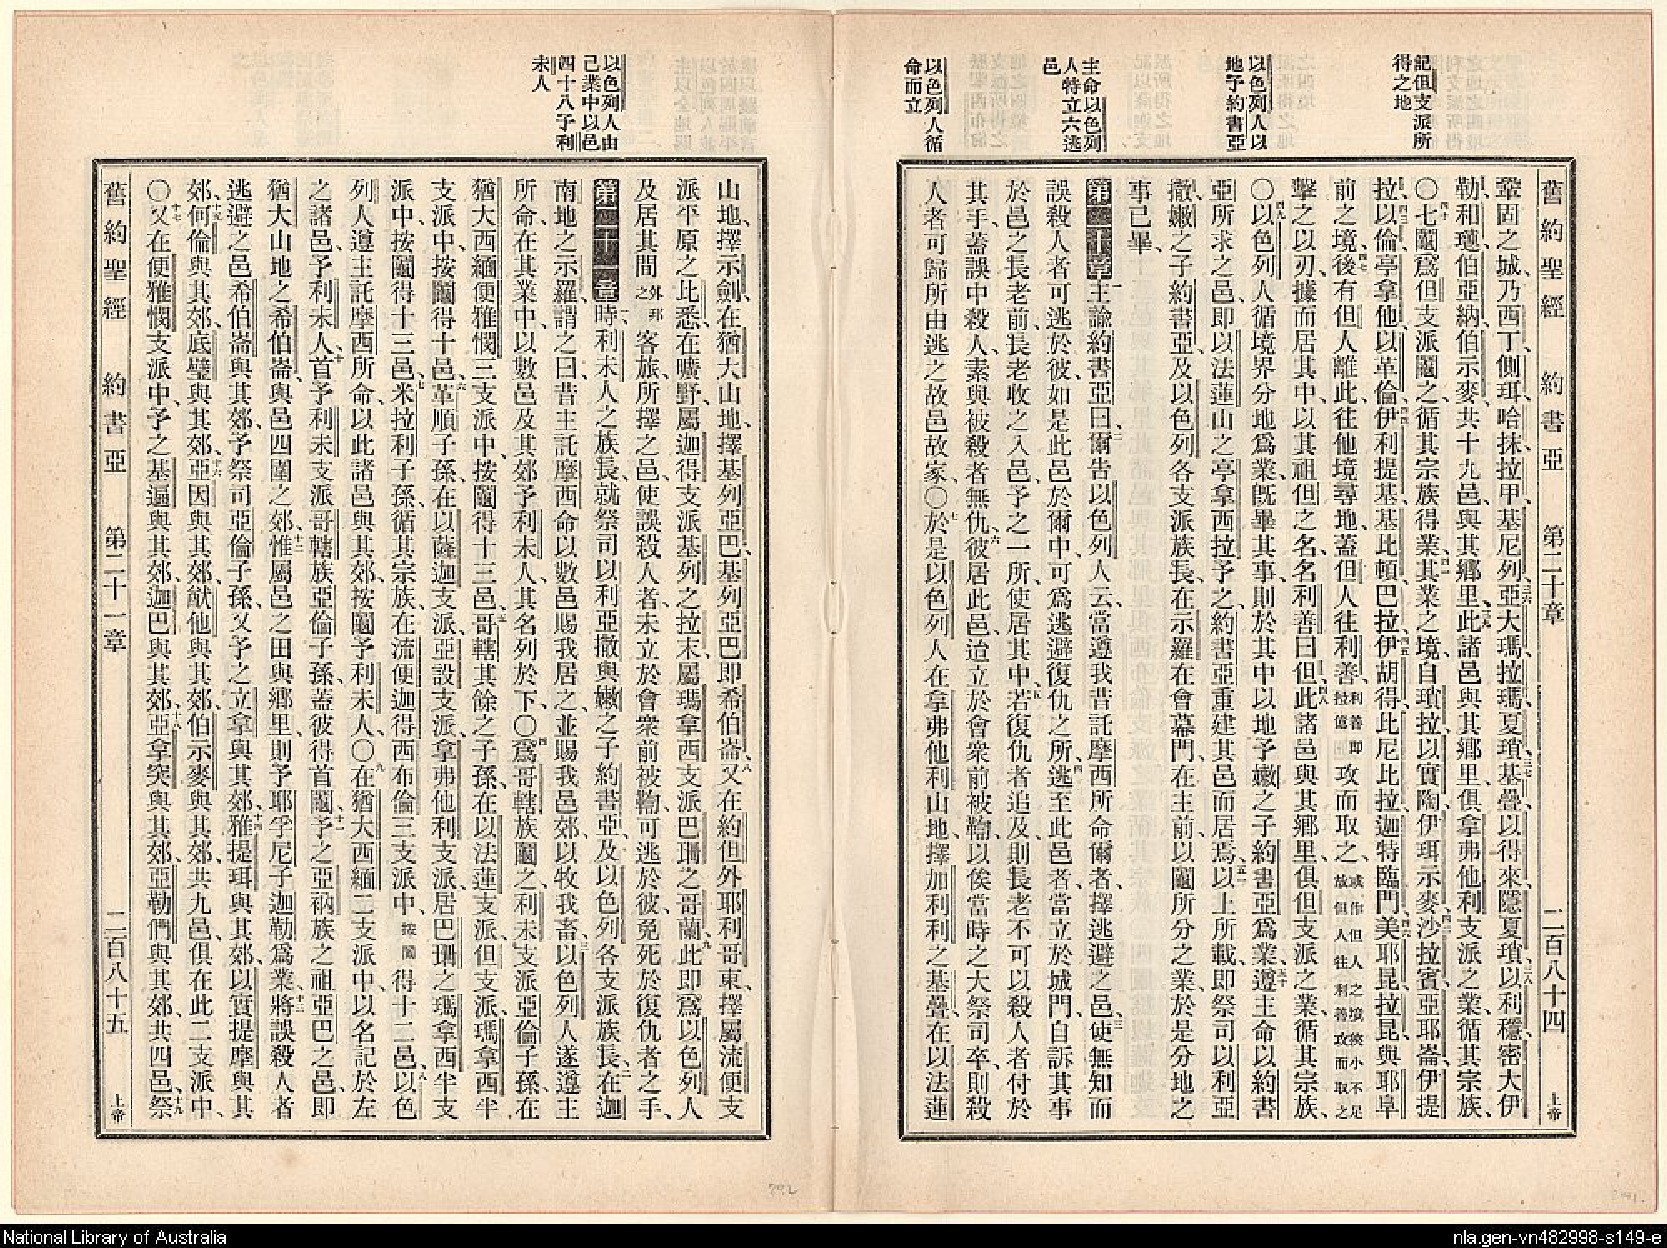 記但支派所
得之地
以色列人以
地予約書亞
主命以色列
人特立六逃
邑
以色列人循
命而立
舊約聖經 約書亞 第二十章 二百八十四 上帝
鞏固之城、乃西丁、側珥、哈抹、拉甲、基尼列、亞大瑪、拉瑪、夏瑣、基疊、以得來、隱夏瑣、以利穩、密大伊
勒、和璉、伯亞納、伯示麥、共十九邑、與其鄉里、此諸邑與其鄉里、俱拿弗他利支派之業、循其宗族、
〇七鬮爲但支派鬮之、循其宗族得業、其業之境、自瑣拉、以實陶、伊珥示麥、沙拉賓、亞耶崙、伊提
拉、以倫、亭拿他、以革倫、伊利提基、基比頓、巴拉、伊胡得、比尼比拉、迦特臨門、美耶昆、拉昆、與耶阜
前之境、後有但人離此、往他境尋地、蓋但人往利善攻而取之、
擊之以刃、據而居其中、以其祖但之名、名利善曰但、此諸邑與其鄉里、俱但支派之業、循其宗族、
〇以色列人循境界分地爲業、旣畢其事、則於其中以地予嫩之子約書亞爲業、遵主命以約書
亞所求之邑、卽以法蓮山之亭拿西拉予之、約書亞重建其邑而居焉、以上所載、卽祭司以利亞
撒、嫩之子約書亞、及以色列各支派族長、在示羅、在會幕門、在主前、以鬮所分之業、於是分地之
事已畢、
第二十章主諭約書亞曰、爾告以色列人云、當遵我昔託摩西所命爾者、擇逃避之邑、使無知而
誤殺人者、可逃於彼、如是此邑於爾中、可爲逃避復仇之所、逃至此邑者、當立於城門、自訴其事
於邑之長老前、長老收之入邑、予之一所、使居其中、若復仇者追及、則長老不可以殺人者付於
其手、蓋誤中殺人、素與被殺者無仇、彼居此邑、迨立於會衆前被鞫、以俟當時之大祭司卒、則殺
人者可歸所由逃之故邑故家、〇於是以色列人在拿弗他利山地、擇加利利之基疊、在以法蓮
以色列人由
己業中以邑
四十八予利
未人
山地、擇示劍、在猶大山地、擇基列亞巴、基列亞巴卽希伯崙、又在約但外耶利哥東、擇屬流便支
派平原之比悉、在曠野、屬迦得支派基列之拉末、屬瑪拿西支派巴珊之哥蘭、此卽爲以色列人
及居其間之外邦客旅所擇之邑、使誤殺人者、未立於會衆前被鞫、可逃於彼、免死於復仇者之手、
第二十一章時利未人之族長、就祭司以利亞撒、與嫩之子約書亞、及以色列各支派族長、在迦
南地之示羅、謂之曰、昔主託摩西命以數邑賜我居之、並賜我邑郊、以牧我畜、以色列人遂遵主
所命、在其業中、以數邑及其郊、予利未人、其名列於下、〇爲哥轄族鬮之、利未支派亞倫子孫、在
猶大、西緬、便雅憫、三支派中、按鬮得十三邑、哥轄其餘之子孫、在以法蓮支派、但支派、瑪拿西半
支派中、按鬮得十邑、革順子孫、在以薩迦支派、亞設支派、拿弗他利支派、居巴珊之瑪拿西半支
派中、按鬮得十三邑、米拉利子孫、循其宗族、在流便、迦得、西布倫、三支派中、按鬮得十二邑、以色
列人遵主託摩西所命、以此諸邑與其郊、按鬮予利未人、〇在猶大西緬二支派中、以名記於左
之諸邑、予利未人、首予利未支派哥轄族亞倫子孫、蓋彼得首鬮、予之亞衲族之祖亞巴之邑、卽
猶大山地之希伯崙、與邑四圍之郊、惟屬邑之田與鄉里、則予耶孚尼子迦勒爲業、將誤殺人者
逃避之邑希伯崙與其郊、予祭司亞倫子孫、又予之立拿與其郊、雅提珥與其郊、以實提摩與其
郊、何倫與其郊、底璧與其郊、亞因與其郊、猷他與其郊、伯示麥與其郊、共九邑、俱在此二支派中、
〇又在便雅憫支派中、予之基遍與其郊、迦巴與其郊、亞拿突與其郊、亞勒們與其郊、共四邑、祭
舊約聖經 約書亞 第二十一章 二百八十五 上帝
National Library of Australia
nla.gen-vn482998-s149-e